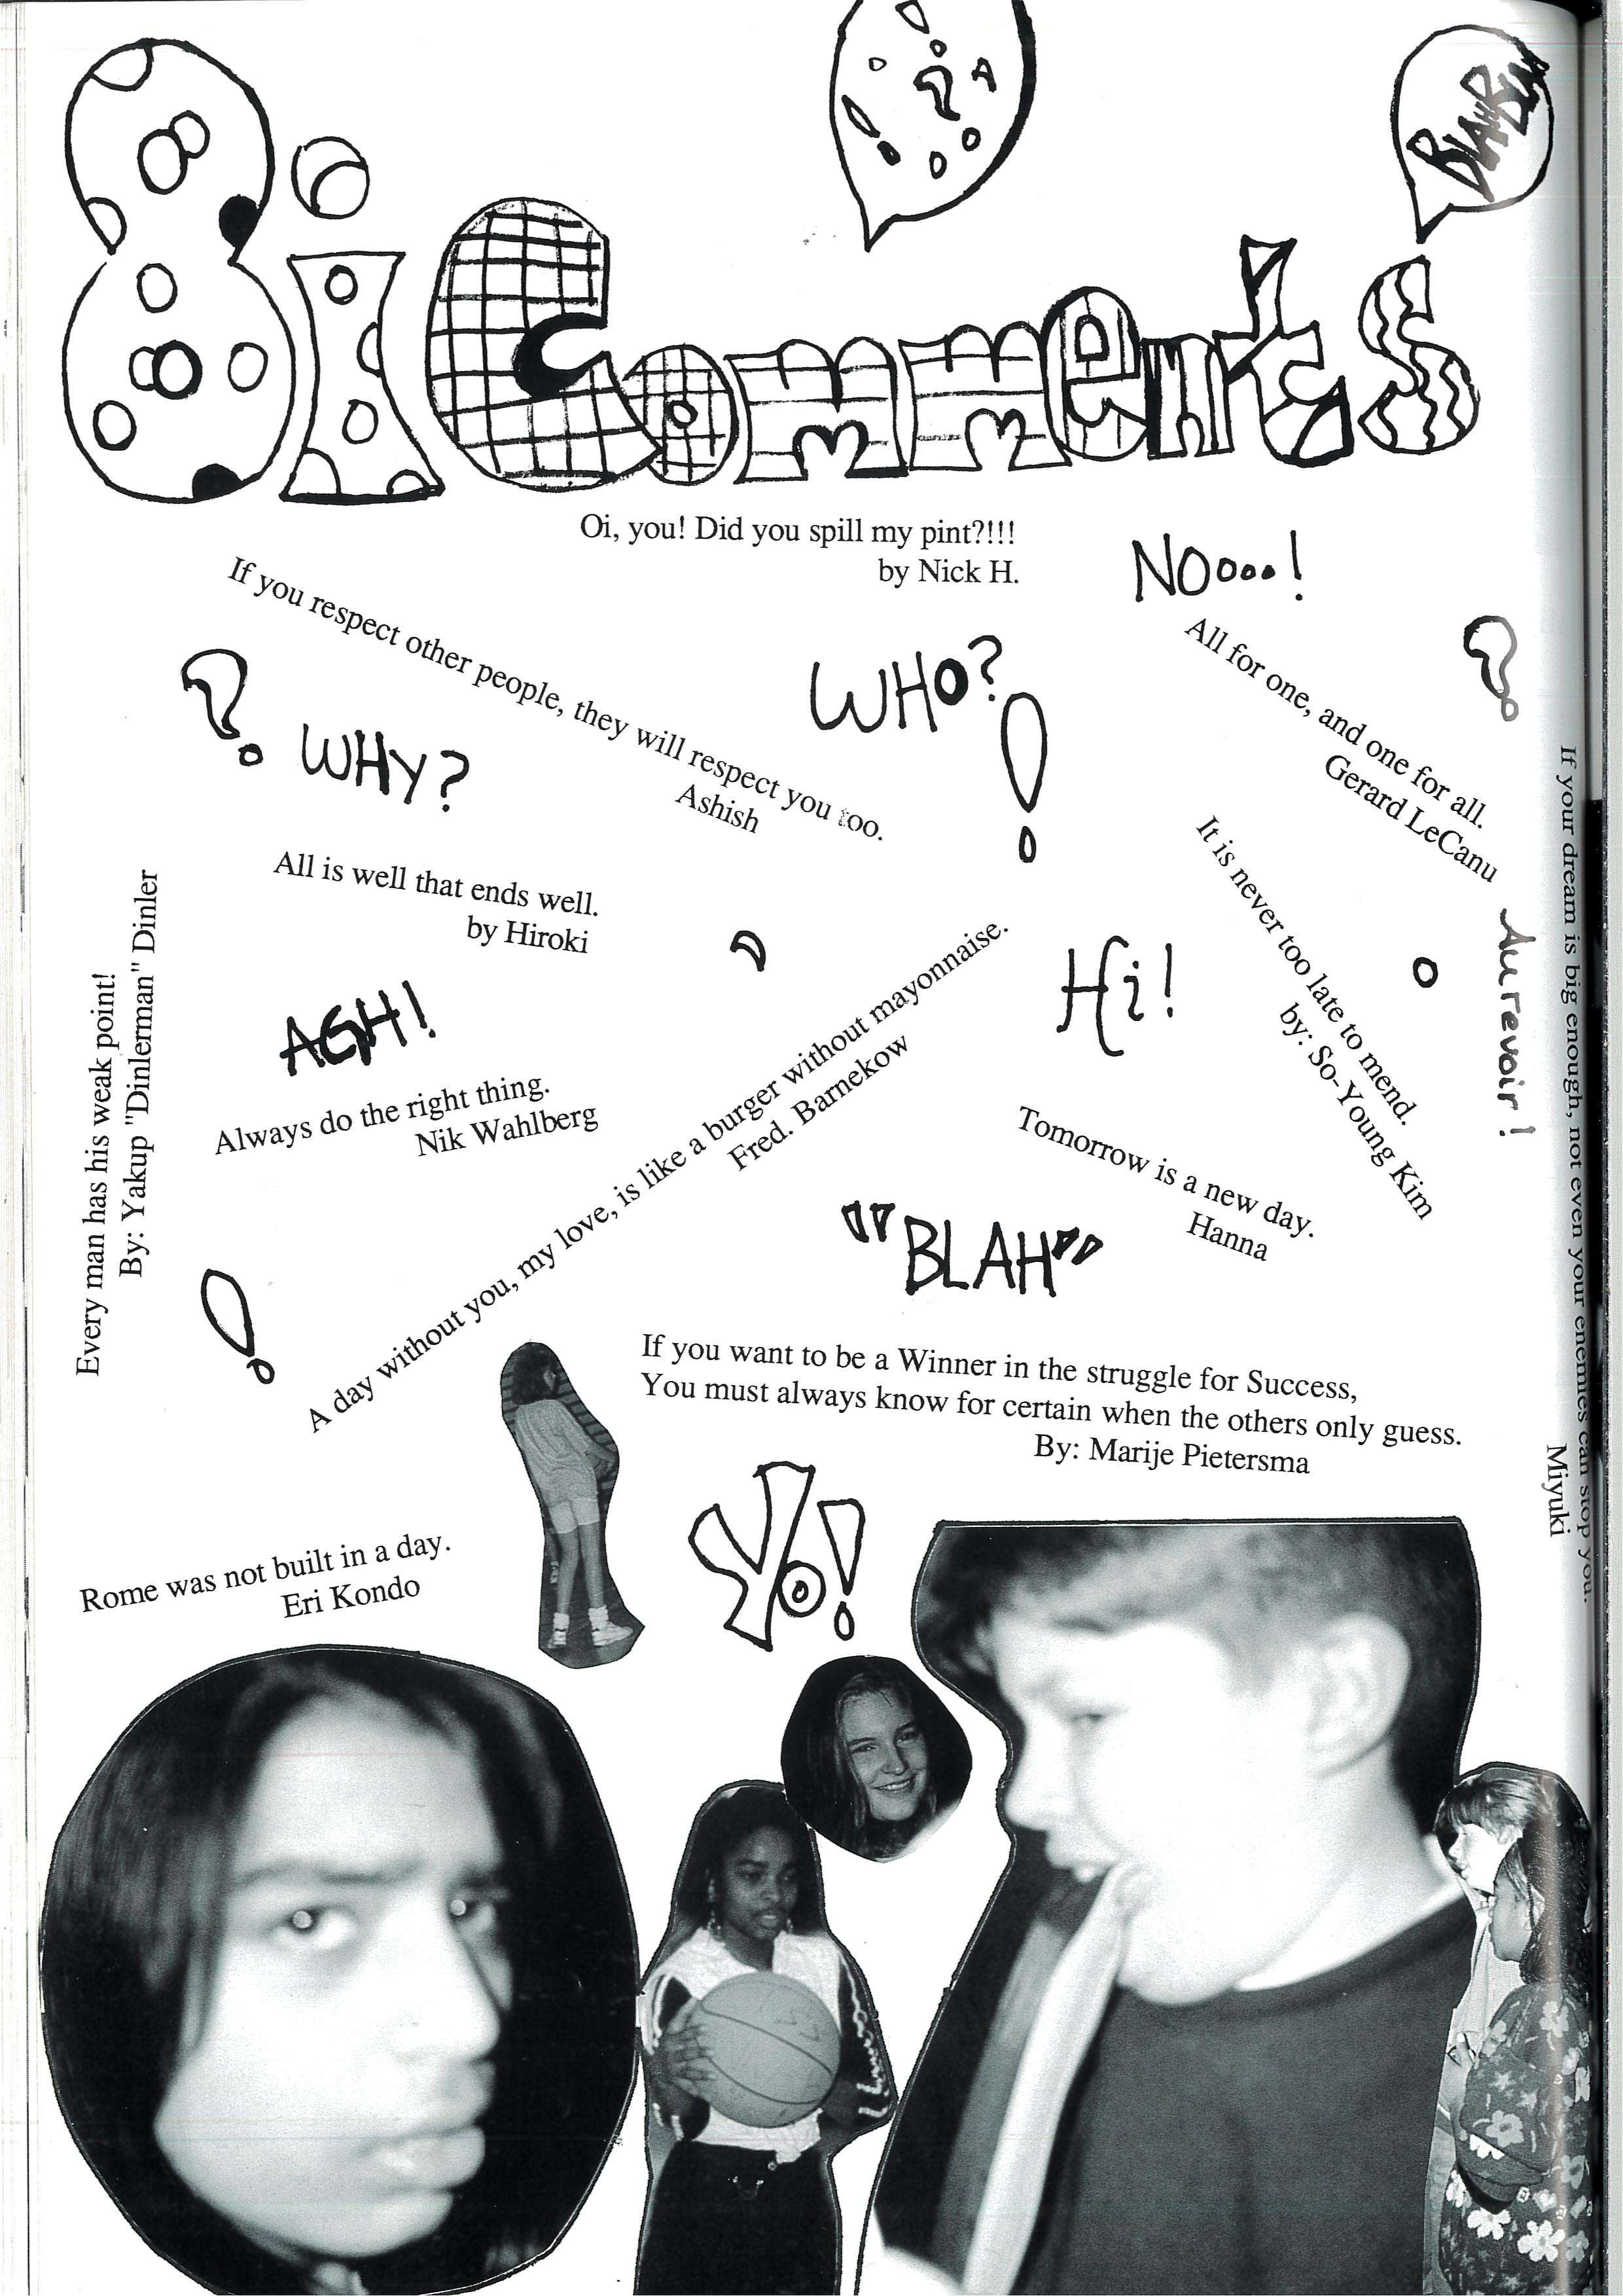 BLAH BLAH
8i Comments
Oi, you! Did you spill my pint?!!!
by Nick H.
NOooo!
If you respect other people, they will respect you too.
Ashish
All for one, and one for all.
Gerard LeCanu
?
WHO?
!
? WHY?
It is never too late to mend.
by: So-Young Kim
If your dream is big enough, not even your enemies can stop you.
Miyuki
All is well that ends well.
by Hiroki
Au revoir!
Hi!
Every man has his weak point!
By: Yakup "Dinlerman" Dinler
AGH!
Always do the right thing.
Nik Wahlberg
A day without you, my love, is like a burger without mayonnaise.
Fred. Barnekow
Tomorrow is a new day.
Hanna
"BLAH"
!
If you want to be a Winner in the struggle for Success,
You must always know for certain when the others only guess.
By: Marije Pietersma
Yo!
Rome was not built in a day.
Eri Kondo